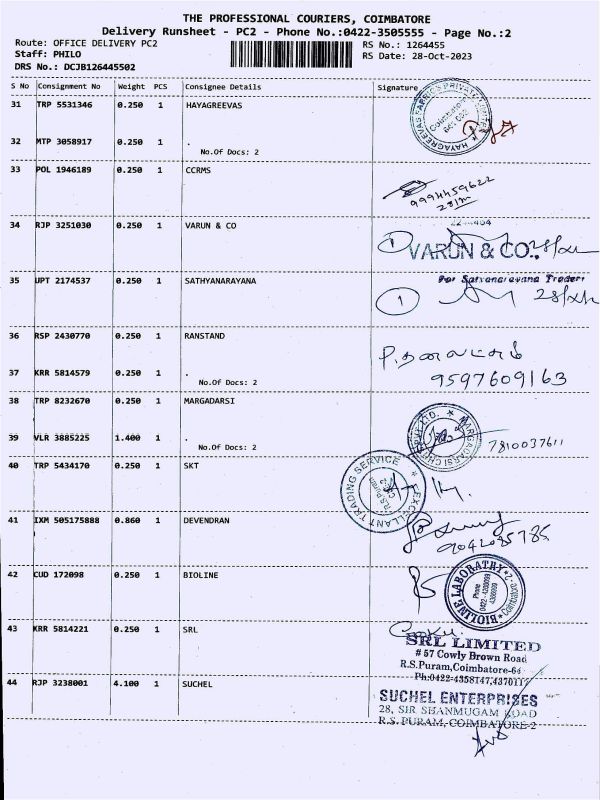 THE PROFESSIONAL COURIERS, COIMBATORE
Delivery Runsheet - PC2 - Phone No.:0422-3505555 - Page No.:2
Route: OFFICE DELIVERY PC2
Staff: PHILO
DRS No.: DCJB126445502
RS No.: 1264455
RS Date: 28-Oct-2023
S No Consignment No Weight PCS Consignee Details Signature
31 TRP 5531346 0.250 1 HAYAGREEVAS
32 MTP 3058917 0.250 1 .
No.Of Docs: 2
33 POL 1946189 0.250 1 CCRMS
9994459622
34 RJP 3251030 0.250 1 VARUN & CO
1 VARUN & CO.,
35 UPT 2174537 0.250 1 SATHYANARAYANA
For Satyanarayana Traders
1
36 RSP 2430770 0.250 1 RANSTAND
37 KRR 5814579 0.250 1 .
No.Of Docs: 2
9597609163
38 TRP 8232670 0.250 1 MARGADARSI
39 VLR 3885225 1.400 1 .
No.Of Docs: 2
7810037611
40 TRP 5434170 0.250 1 SKT
EXCELLANT TRADING SERVICE
R.S.Puram
41 IXM 505175888 0.860 1 DEVENDRAN
9042085785
42 CUD 172098 0.250 1 BIOLINE
BIOLINE LABORATRY
Phone
0422-4200099
Coimbatore-2
43 KRR 5814221 0.250 1 SRL
SRL LIMITED
# 57 Cowly Brown Road
R.S.Puram,Coimbatore-64
Ph:0422-4358147,4370117
44 RJP 3238001 4.100 1 SUCHEL
SUCHEL ENTERPRISES
28, SIR SHANMUGAM ROAD
R.S. PURAM, COIMBATORE-2